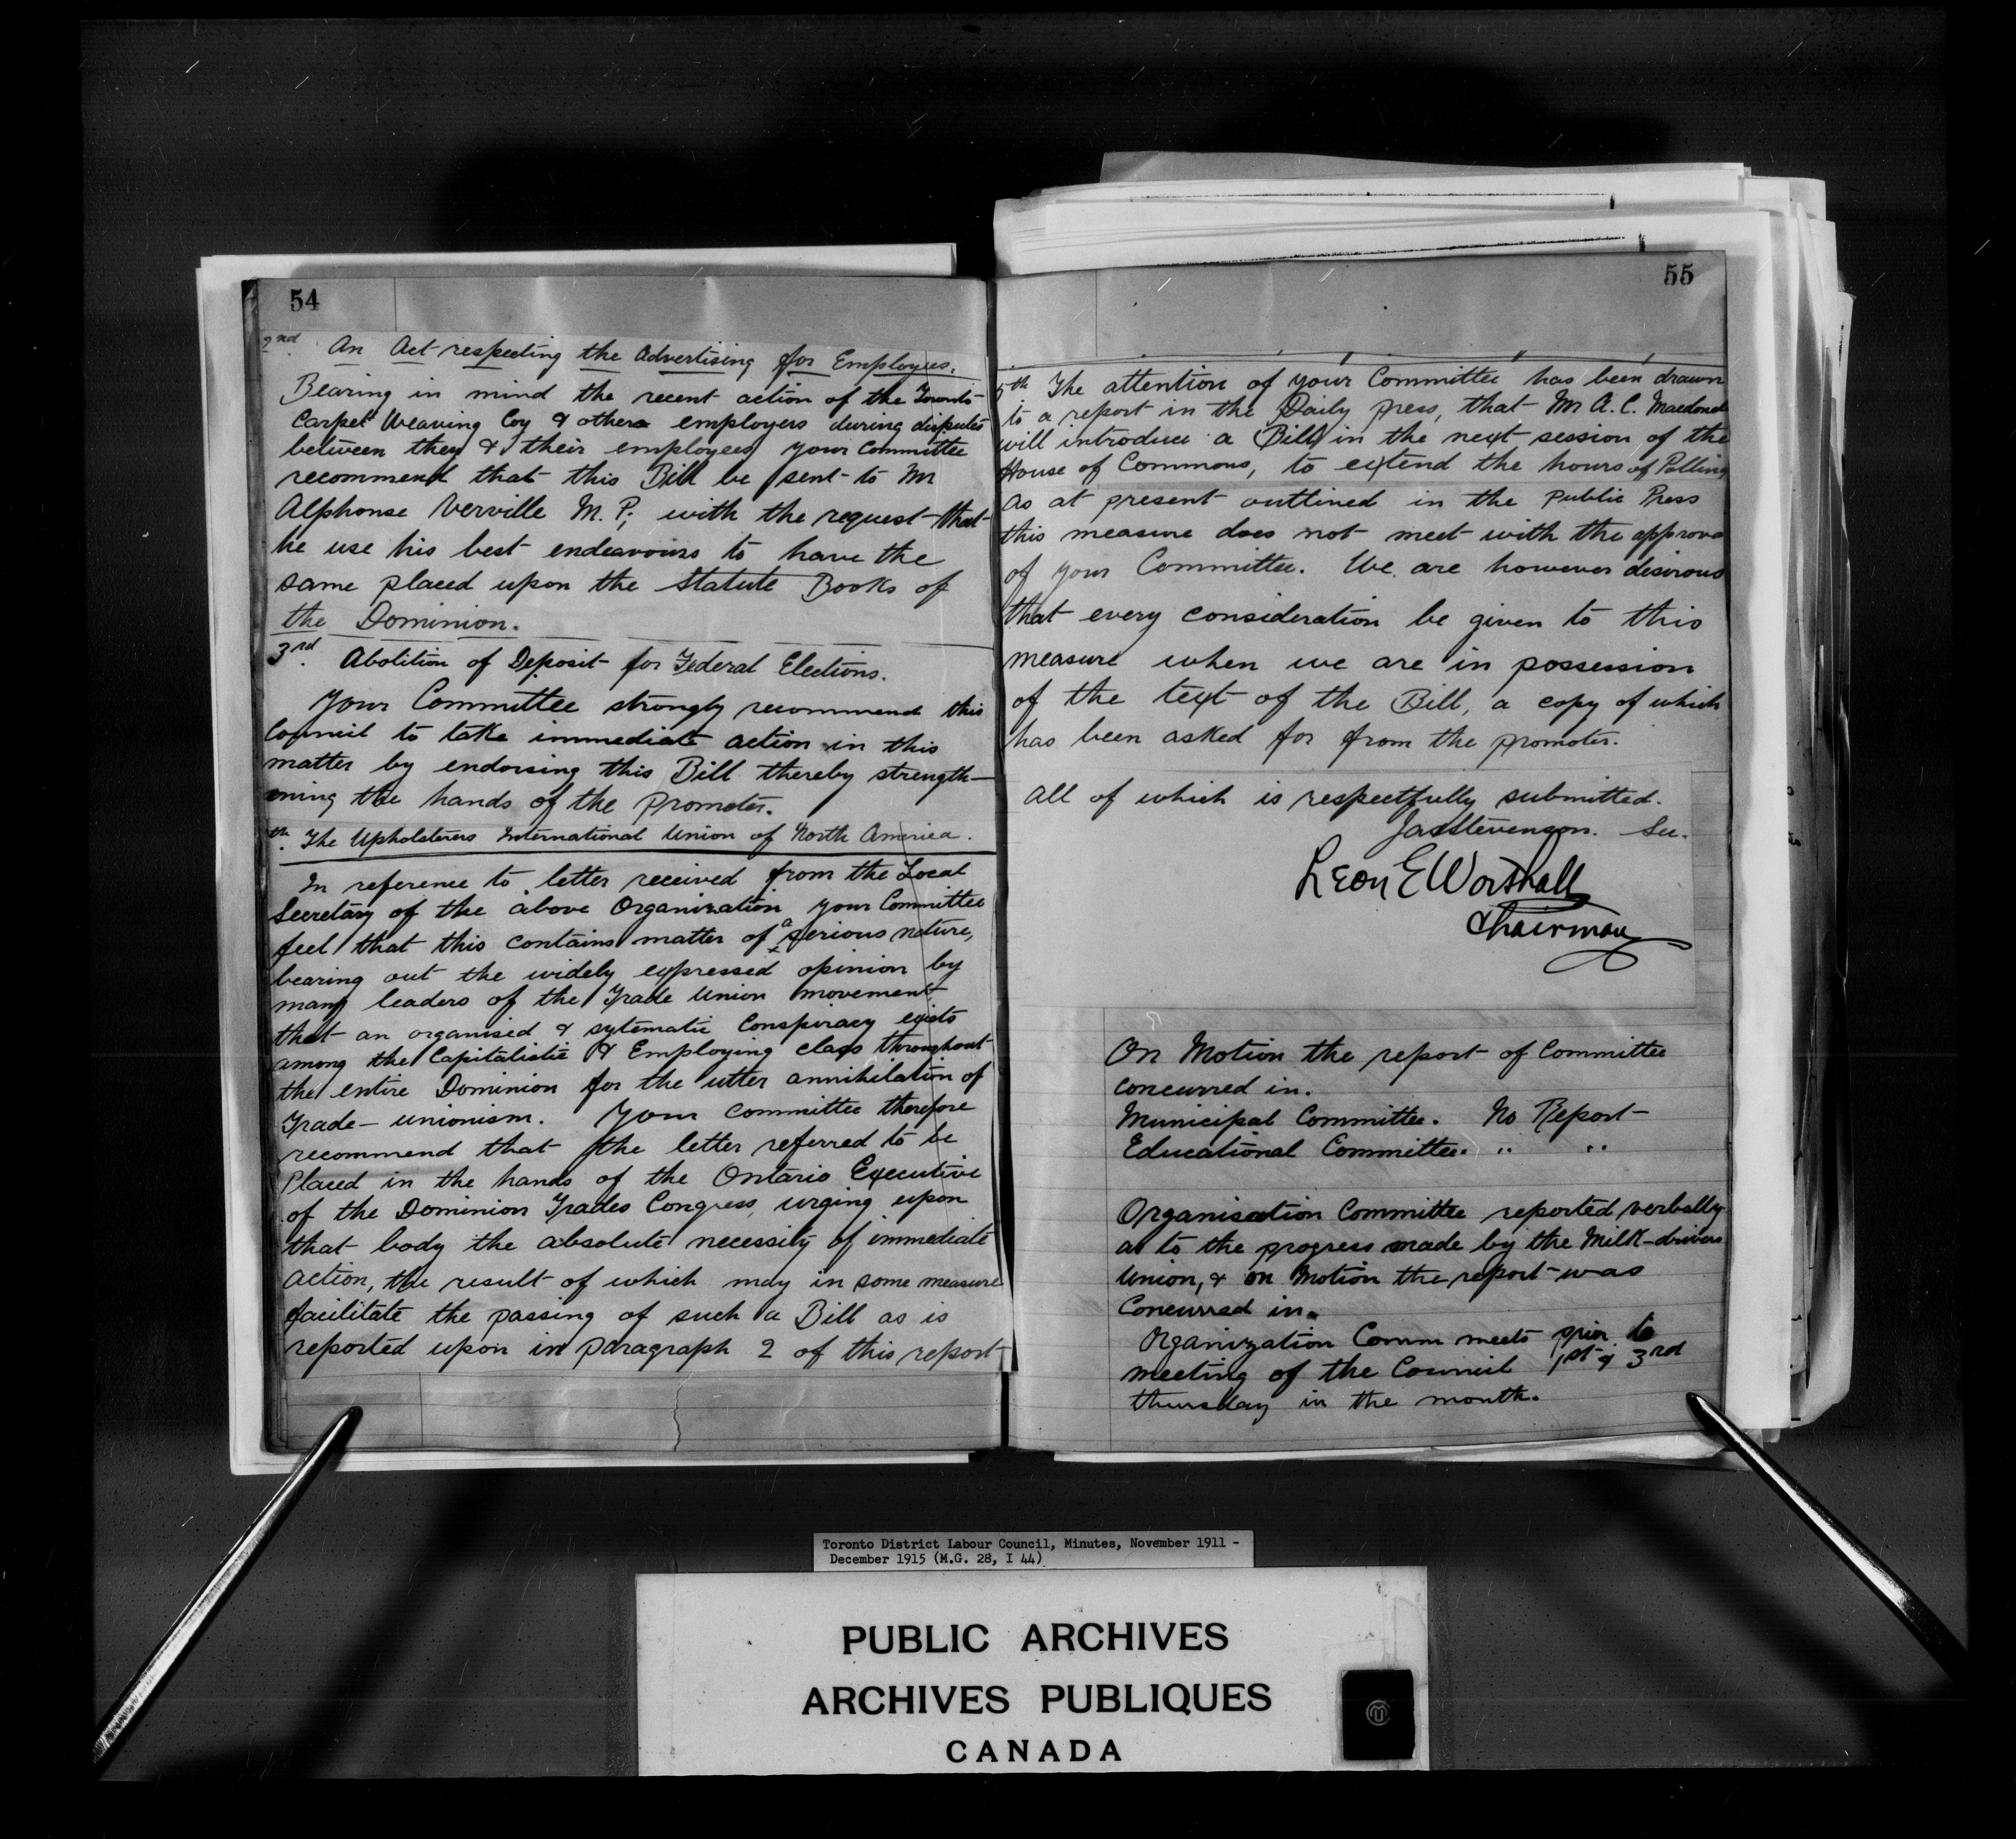 54
2nd. An Act respecting the Advertising for Employees.
Bearing in mind the recent action of the Toronto
Carpet Weaving Coy & others employers during disputes
between they & their employees your committee
recommend that this Bill be sent to Mr
Alphonse Verville M.P; with the request that
he use his best endeavours to have the
same placed upon the Statute Books of
the Dominion.
3rd. Abolition of Deposit for Federal Elections.
Your Committee strongly recommend this
Council to take immediate action in this
matter by endorsing this Bill thereby strength-
ening the hands of the promoter.
th. The Upholsterers International Union of North America.
In reference to letter received from the Local
Secretary of the above Organization your Committee
feel that this contains matter of a serious nature,
bearing out the widely expressed opinion by
many leaders of the Trade Union movement
that an organised & sytematic Conspiracy exists
among the Capitalistic & Employing class throughout
the entire Dominion for the utter annihilation of
Trade-unionism. Your committee therefore
recommend that the letter referred to be
Placed in the hands of the Ontario Executive
of the Dominion Trades Congress, urging upon
that body the absolute necessity of immediate
action, the result of which may in some measure
facilitate the passing of such a Bill as is
reported upon in paragraph 2 of this report
55
5th The attention of your Committee has been drawn
to a report in the Daily press, that Mr A.C. Macdonel
will introduce a Bill in the next session of the
House of Commons, to extend the hours of Polling
as at present outlined in the Public Press
this measure does not meet with the approva
of your Committee. We are however desirous
that every consideration be given to this
measure when we are in possession
of the text of the Bill, a copy of which
has been asked for from the promoter.
All of which is respectfully submitted.
Jas Stevenson. Sec.
Leon E Worthall
Chairman
On Motion the report of Committee
concurred in.
Municipal Committee. No Report
Educational Committee. " "
Organisation Committee reported verbally
as to the progress made by the Milk-drivers
Union, & on Motion the report was
Concurred in.
Organization Comm meets prior to
meeting of the Council 1st & 3rd
thursday in the month.
Toronto District Labour Council, Minutes, November 1911 -
December 1915 (M.G. 28, I 44)
PUBLIC ARCHIVES
ARCHIVES PUBLIQUES
CANADA